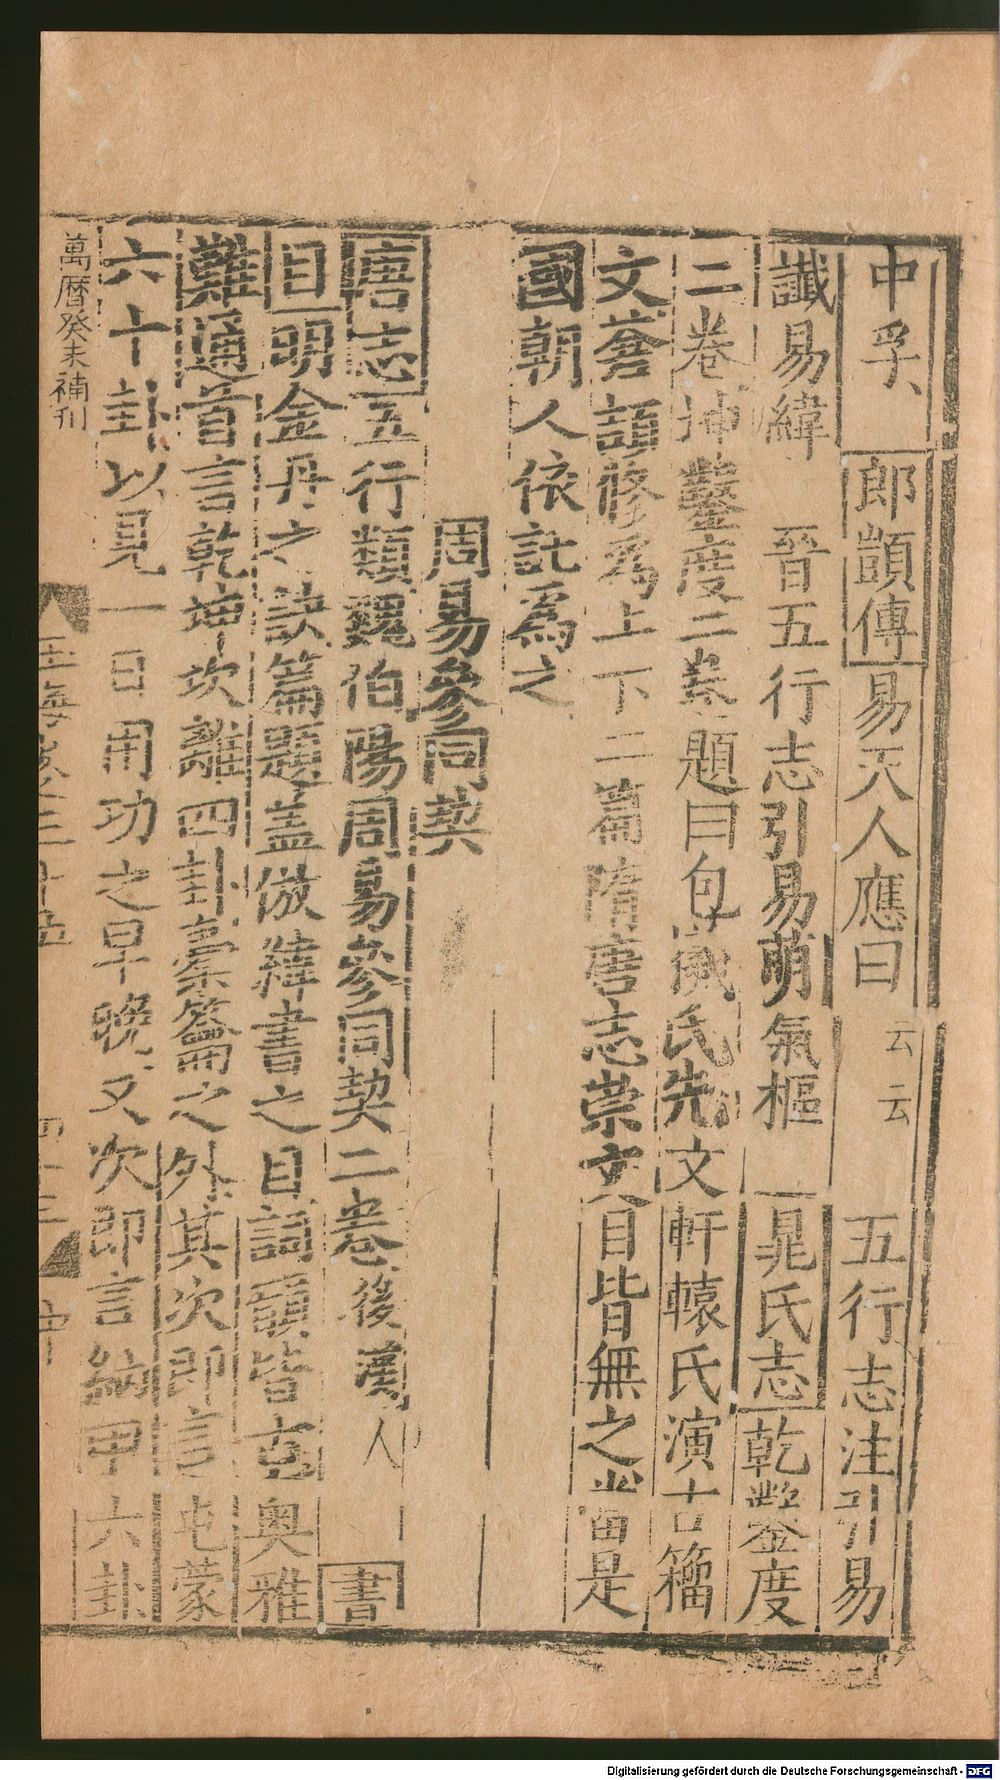 中孚 郎顗傳易天人應曰云云 五行志注引易
讖易緯 晉五行志引易萌氣樞 晁氏志乾鑿度
二卷坤鑿度二卷題曰包羲氏先文軒轅氏演古籀
文蒼頡修爲上下二篇隋唐志崇文目皆無之當是
國朝人依託爲之
周易參同契
唐志五行類魏伯陽周易參同契二卷後漢人 書
目一明金丹之訣篇題蓋倣緯書之目詞韻皆古奧雅
難通首言乾坤坎離四卦橐籥之外其次即言屯蒙
六十卦以見一日用功之早晚又次即言納甲六卦
玉海卷三十五 四十三
萬曆癸未補刊
Digitalisierung gefördert durch die Deutsche Forschungsgemeinschaft - DFG